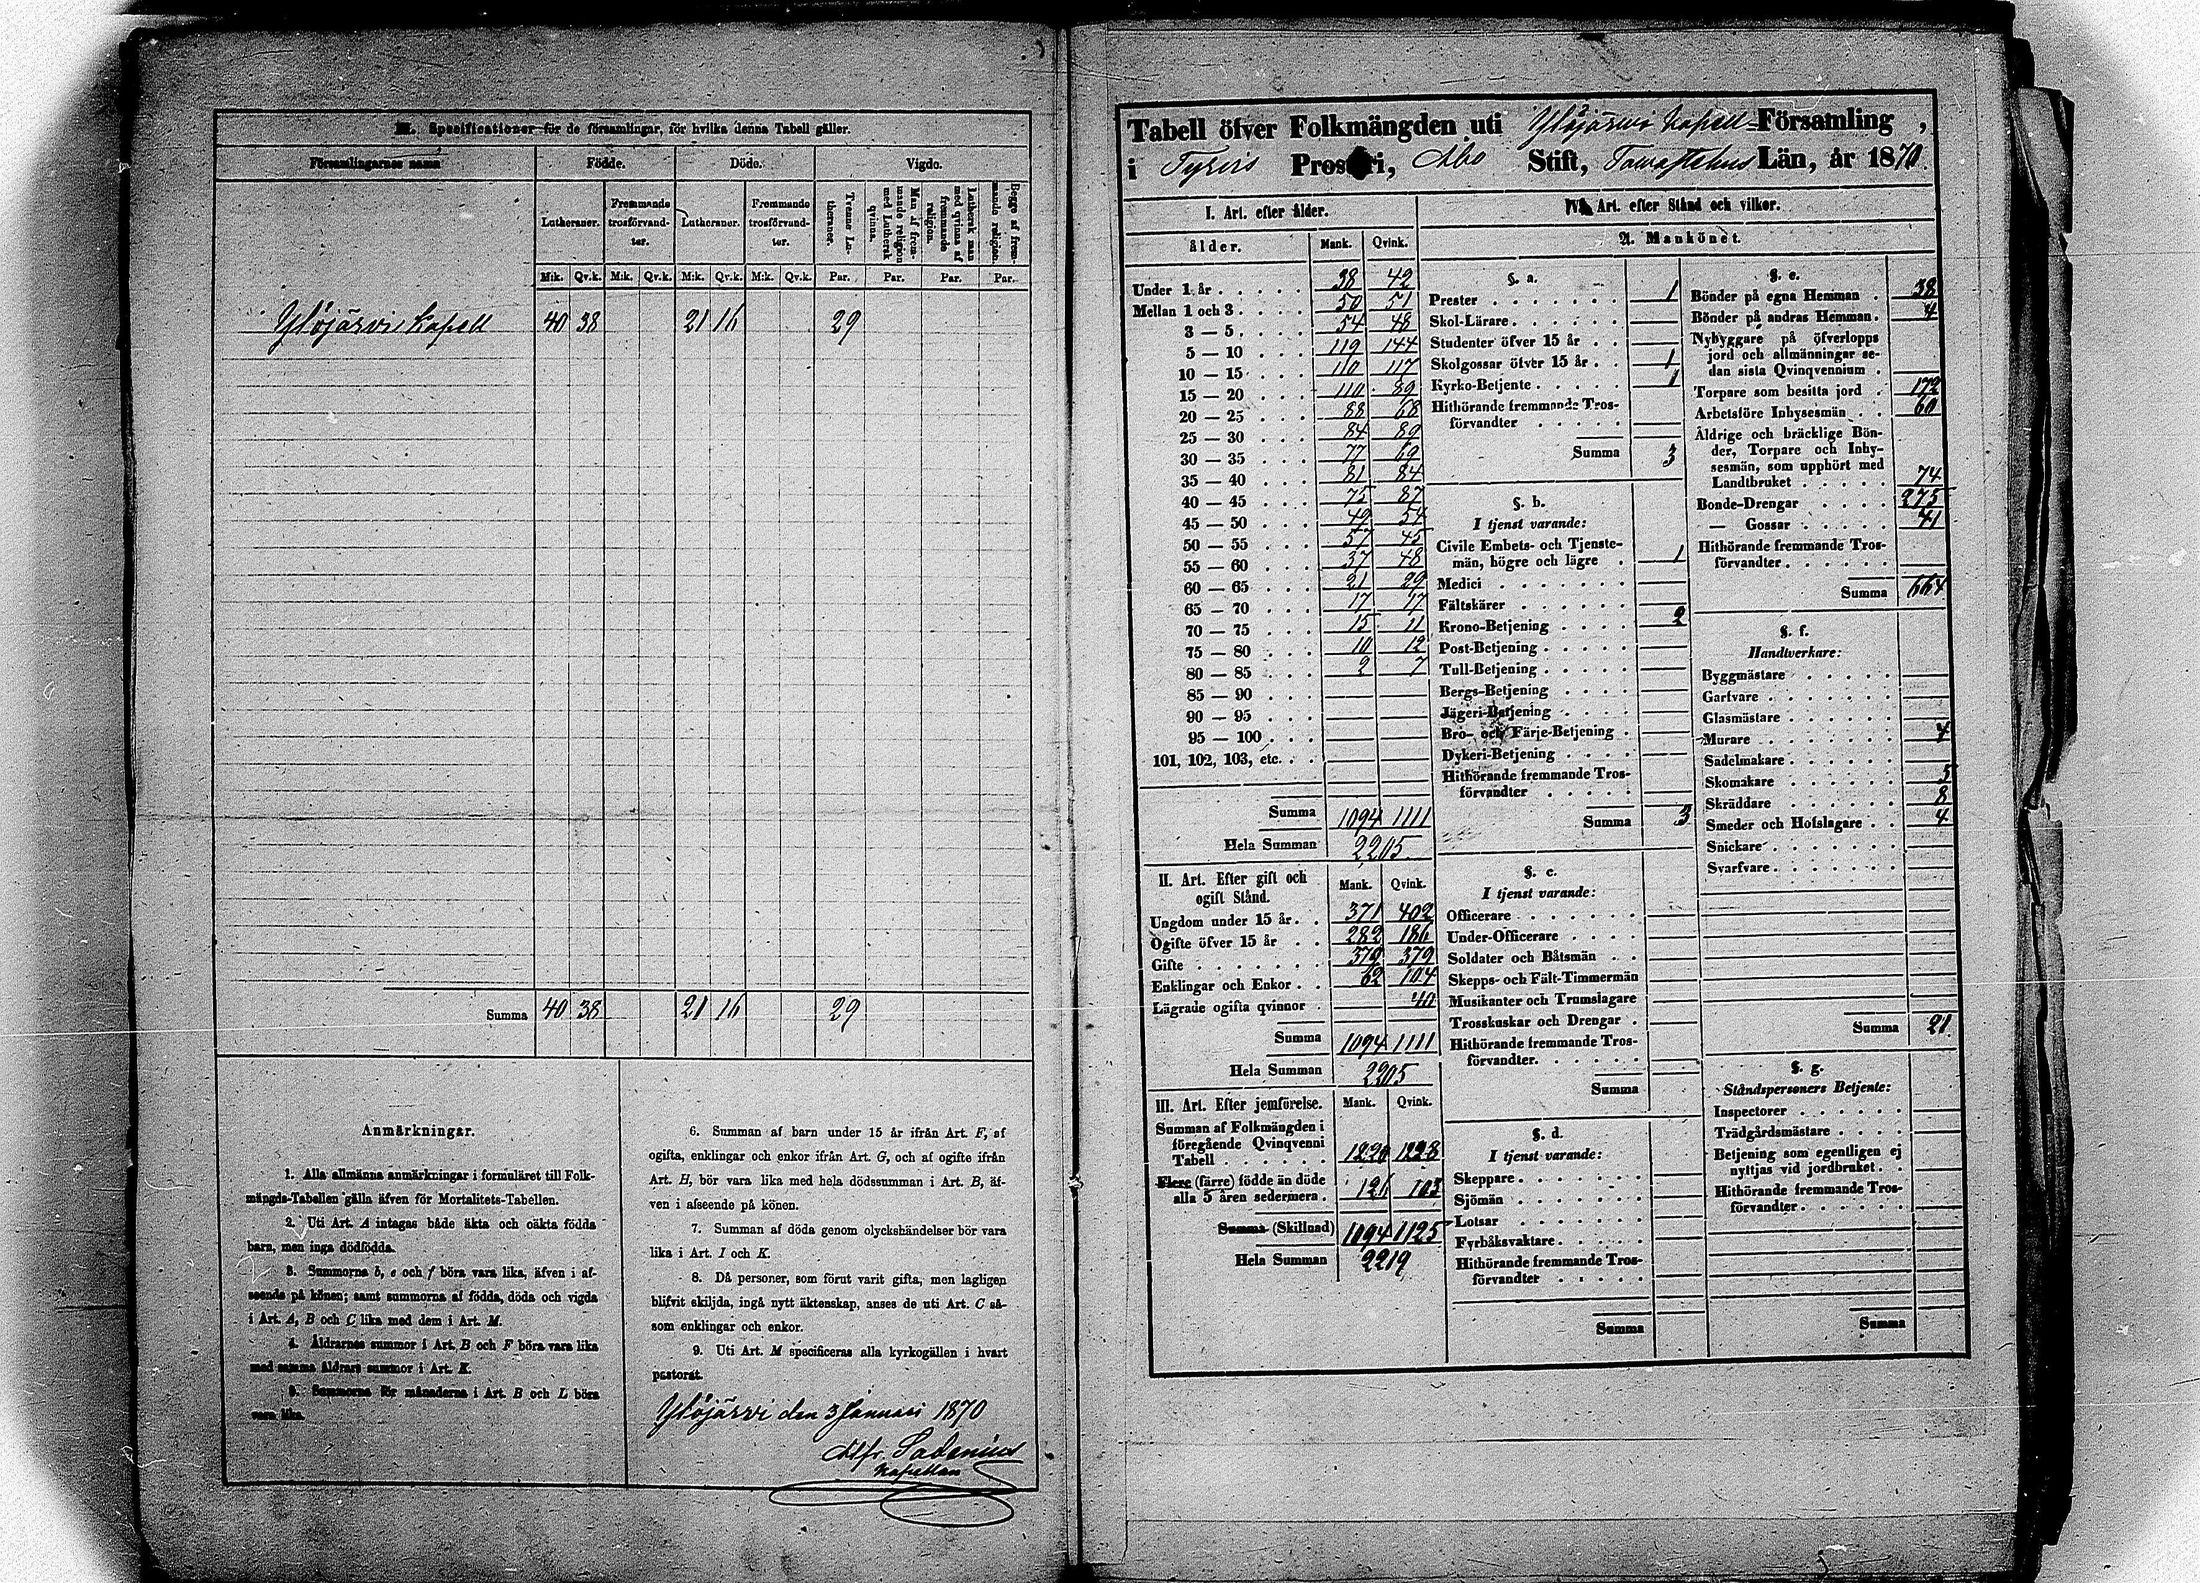 M. Specificationer för de församlingar, för hvilka denna Tabell gäller.
Församlingarnes namn Födde. Döde. Vigde.
Lutheraner. Fremmande trosförvandter. Lutheraner. Fremmande trosförvandter. Tvenne Lutheraner. Man af fremmande religion med Luthersk qvinna. Luthersk man med qvinna af fremmande religion. Begge af fremmande religion.
Mk. Qv.k. Mk. Qv.k. Mk. Qv.k. Mk. Qv.k. Par. Par. Par. Par.
Ylöjärvi Kapell 40 38 21 16 29
Summa 40 38 21 16 29
Anmärkningar.
1. Alla allmänna anmärkningar i formuläret till Folk-
mängds-Tabellen gälla äfven för Mortalitets-Tabellen.
2. Uti Art. A intagas både äkta och oäkta födda
barn, men inga dödfödda.
3. Summorna b, e och f böra vara lika, äfven i af-
seende på könen; samt summorna af födda, döda och vigda
i Art. A, B och C lika med dem i Art. M.
4. Åldrarnes summor i Art. B och F böra vara lika
med samma åldrars summor i Art. K.
5. Summorna för månaderna i Art. B och L böra
vara lika.
6. Summan af barn under 15 år ifrån Art. F, af
ogifta, enklingar och enkor ifrån Art. G, och af ogifte ifrån
Art. H, bör vara lika med hela dödssumman i Art. B, äf-
ven i afseende på könen.
7. Summan af döda genom olyckshändelser bör vara
lika i Art. I och K.
8. Då personer, som förut varit gifta, men lagligen
blifvit skiljda, ingå nytt äktenskap, anses de uti Art. C så-
som enklingar och enkor.
9. Uti Art. M specificeras alla kyrkogällen i hvart
pastorat.
Ylöjärvi den 3 Januari 1870
Kapellan
Tabell öfver Folkmängden uti Ylöjärvi Kapell-Församling,
i Tyrvis Prosteri, Åbo Stift, Tawastehus Län, år 1870.
I. Art. efter ålder.
ålder. Mank. Qvink.
Under 1 år 38 42
Mellan 1 och 3 50 51
3 — 5 54 48
5 — 10 119 144
10 — 15 110 117
15 — 20 110 89
20 — 25 88 68
25 — 30 84 89
30 — 35 77 69
35 — 40 81 84
40 — 45 75 87
45 — 50 49 54
50 — 55 57 45
55 — 60 37 48
60 — 65 21 29
65 — 70 17 17
70 — 75 15 11
75 — 80 10 12
80 — 85 2 7
85 — 90
90 — 95
95 — 100
101, 102, 103, etc.
Summa 1094 1111
Hela Summan 2205
II. Art. Efter gift och ogift Stånd. Mank. Qvink.
Ungdom under 15 år 371 402
Ogifte öfver 15 år 282 186
Gifte 379 379
Enklingar och Enkor 62 104
Lägrade ogifta qvinnor 40
Summa 1094 1111
Hela Summan 2205
III. Art. Efter jemförelse. Mank. Qvink.
Summan af Folkmängden i
föregående Qvinqvenni
Tabell 1220 1228
Flere (färre) födde än döde
alla 5 åren sedermera 126 103
Summa (Skillnad) 1094 1125
Hela Summan 2219
IV. Art. efter Stånd och vilkor.
A. Mankönet.
§. a.
Prester 1
Skol-Lärare
Studenter öfver 15 år
Skolgossar öfver 15 år 1
Kyrko-Betjente 1
Hithörande fremmande Tros-
förvandter
Summa 3
§. b.
I tjenst varande:
Civile Embets- och Tjenste-
män, högre och lägre 1
Medici
Fältskärer
Krono-Betjening 2
Post-Betjening
Tull-Betjening
Bergs-Betjening
Jägeri-Betjening
Bro- och Färje-Betjening
Dykeri-Betjening
Hithörande fremmande Tros-
förvandter
Summa 3
§. c.
I tjenst varande:
Officerare
Under-Officerare
Soldater och Båtsmän
Skepps- och Fält-Timmermän
Musikanter och Trumslagare
Trosskuskar och Drengar
Hithörande fremmande Tros-
förvandter
Summa
§. d.
I tjenst varande:
Skeppare
Sjömän
Lotsar
Fyrbåksvaktare
Hithörande fremmande Tros-
förvandter
Summa
§. e.
Bönder på egna Hemman 38
Bönder på andras Hemman 4
Nybyggare på öfverlopps
jord och allmänningar se-
dan sista Qvinqvennium
Torpare som besitta jord 172
Arbetsföre Inhysesmän 60
Åldrige och bräcklige Bön-
der, Torpare och Inhy-
sesmän, som upphört med
Landtbruket 74
Bonde-Drengar 275
— Gossar 41
Hithörande fremmande Tros-
förvandter
Summa 664
§. f.
Handtverkare:
Byggmästare
Garfvare
Glasmästare
Murare 4
Sadelmakare
Skomakare 5
Skräddare 8
Smeder och Hofslagare 4
Snickare
Svarfvare
Summa 21
§. g.
Ståndspersoners Betjente:
Inspectorer
Trädgårdsmästare
Betjening som egentligen ej
nyttjas vid jordbruket
Hithörande fremmande Tros-
förvandter
Summa